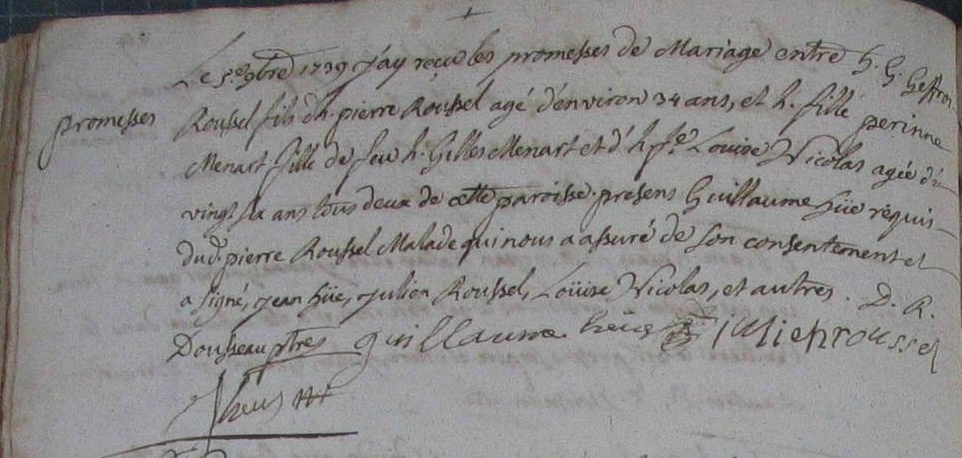 Le 5.e 9bre 1739 j'ay reçu les promesses de Mariage entre h. G. Geffroy
promesses
Roussel fils d'h. pierre Roussel agé d'environ 34 ans, et h. fille perinne
Menart fille de feu h. Gilles Menart et d'h. fe. Louise Nicolas agée de
vingt six ans tous deux de cette paroisse. presens Guillaume hüe réquis
dud. pierre Roussel Malade qui nous a assuré de son consentement et
a signé, jean hüe, julien Roussel, Loüise Nicolas, et autres. D. R.
Dousseau ptre guillaume heue julien roussel
J heus